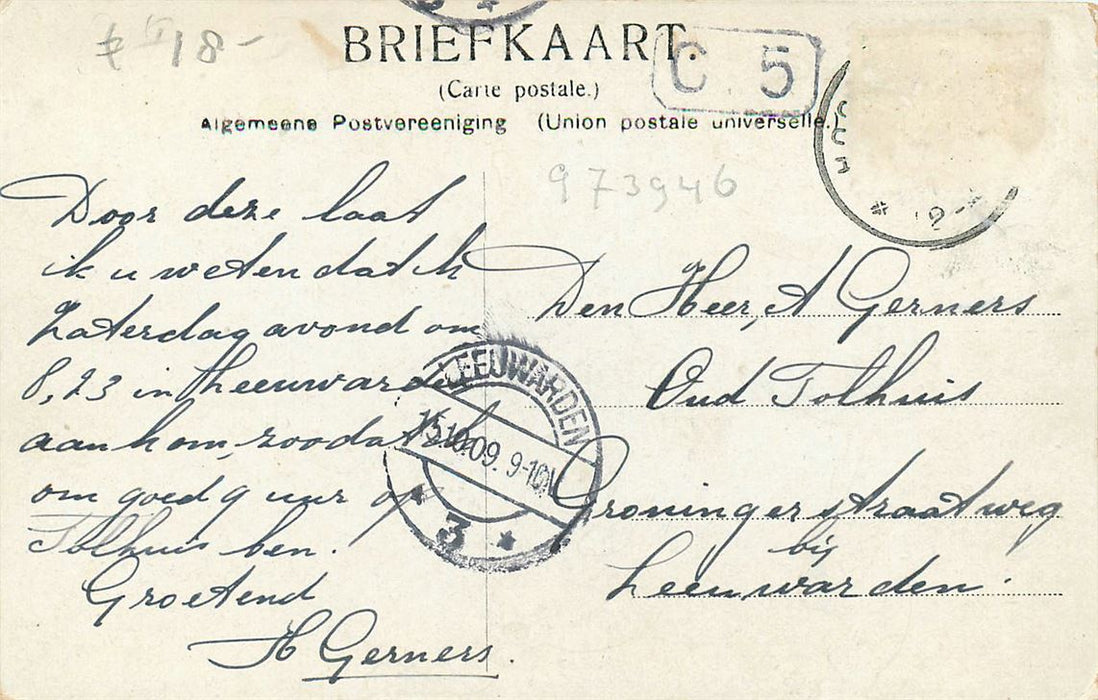 18-
BRIEFKAART.
(Carte postale.)
C 5
Algemeene Postvereeniging (Union postale universelle.)
973946
Door deze laat
ik u weten dat ik
Zaterdag avond om
8,23 in Leeuwarden
aankom, zoodat ik
om goed 9 uur op
Tolhuis ben.
Groetend
H Gerners.
Den Heer, A Gerners
Oud Tolhuis
Groningerstraatweg
bij
Leeuwarden.
LEEUWARDEN
15.10.09. 9-10V
* 3 *